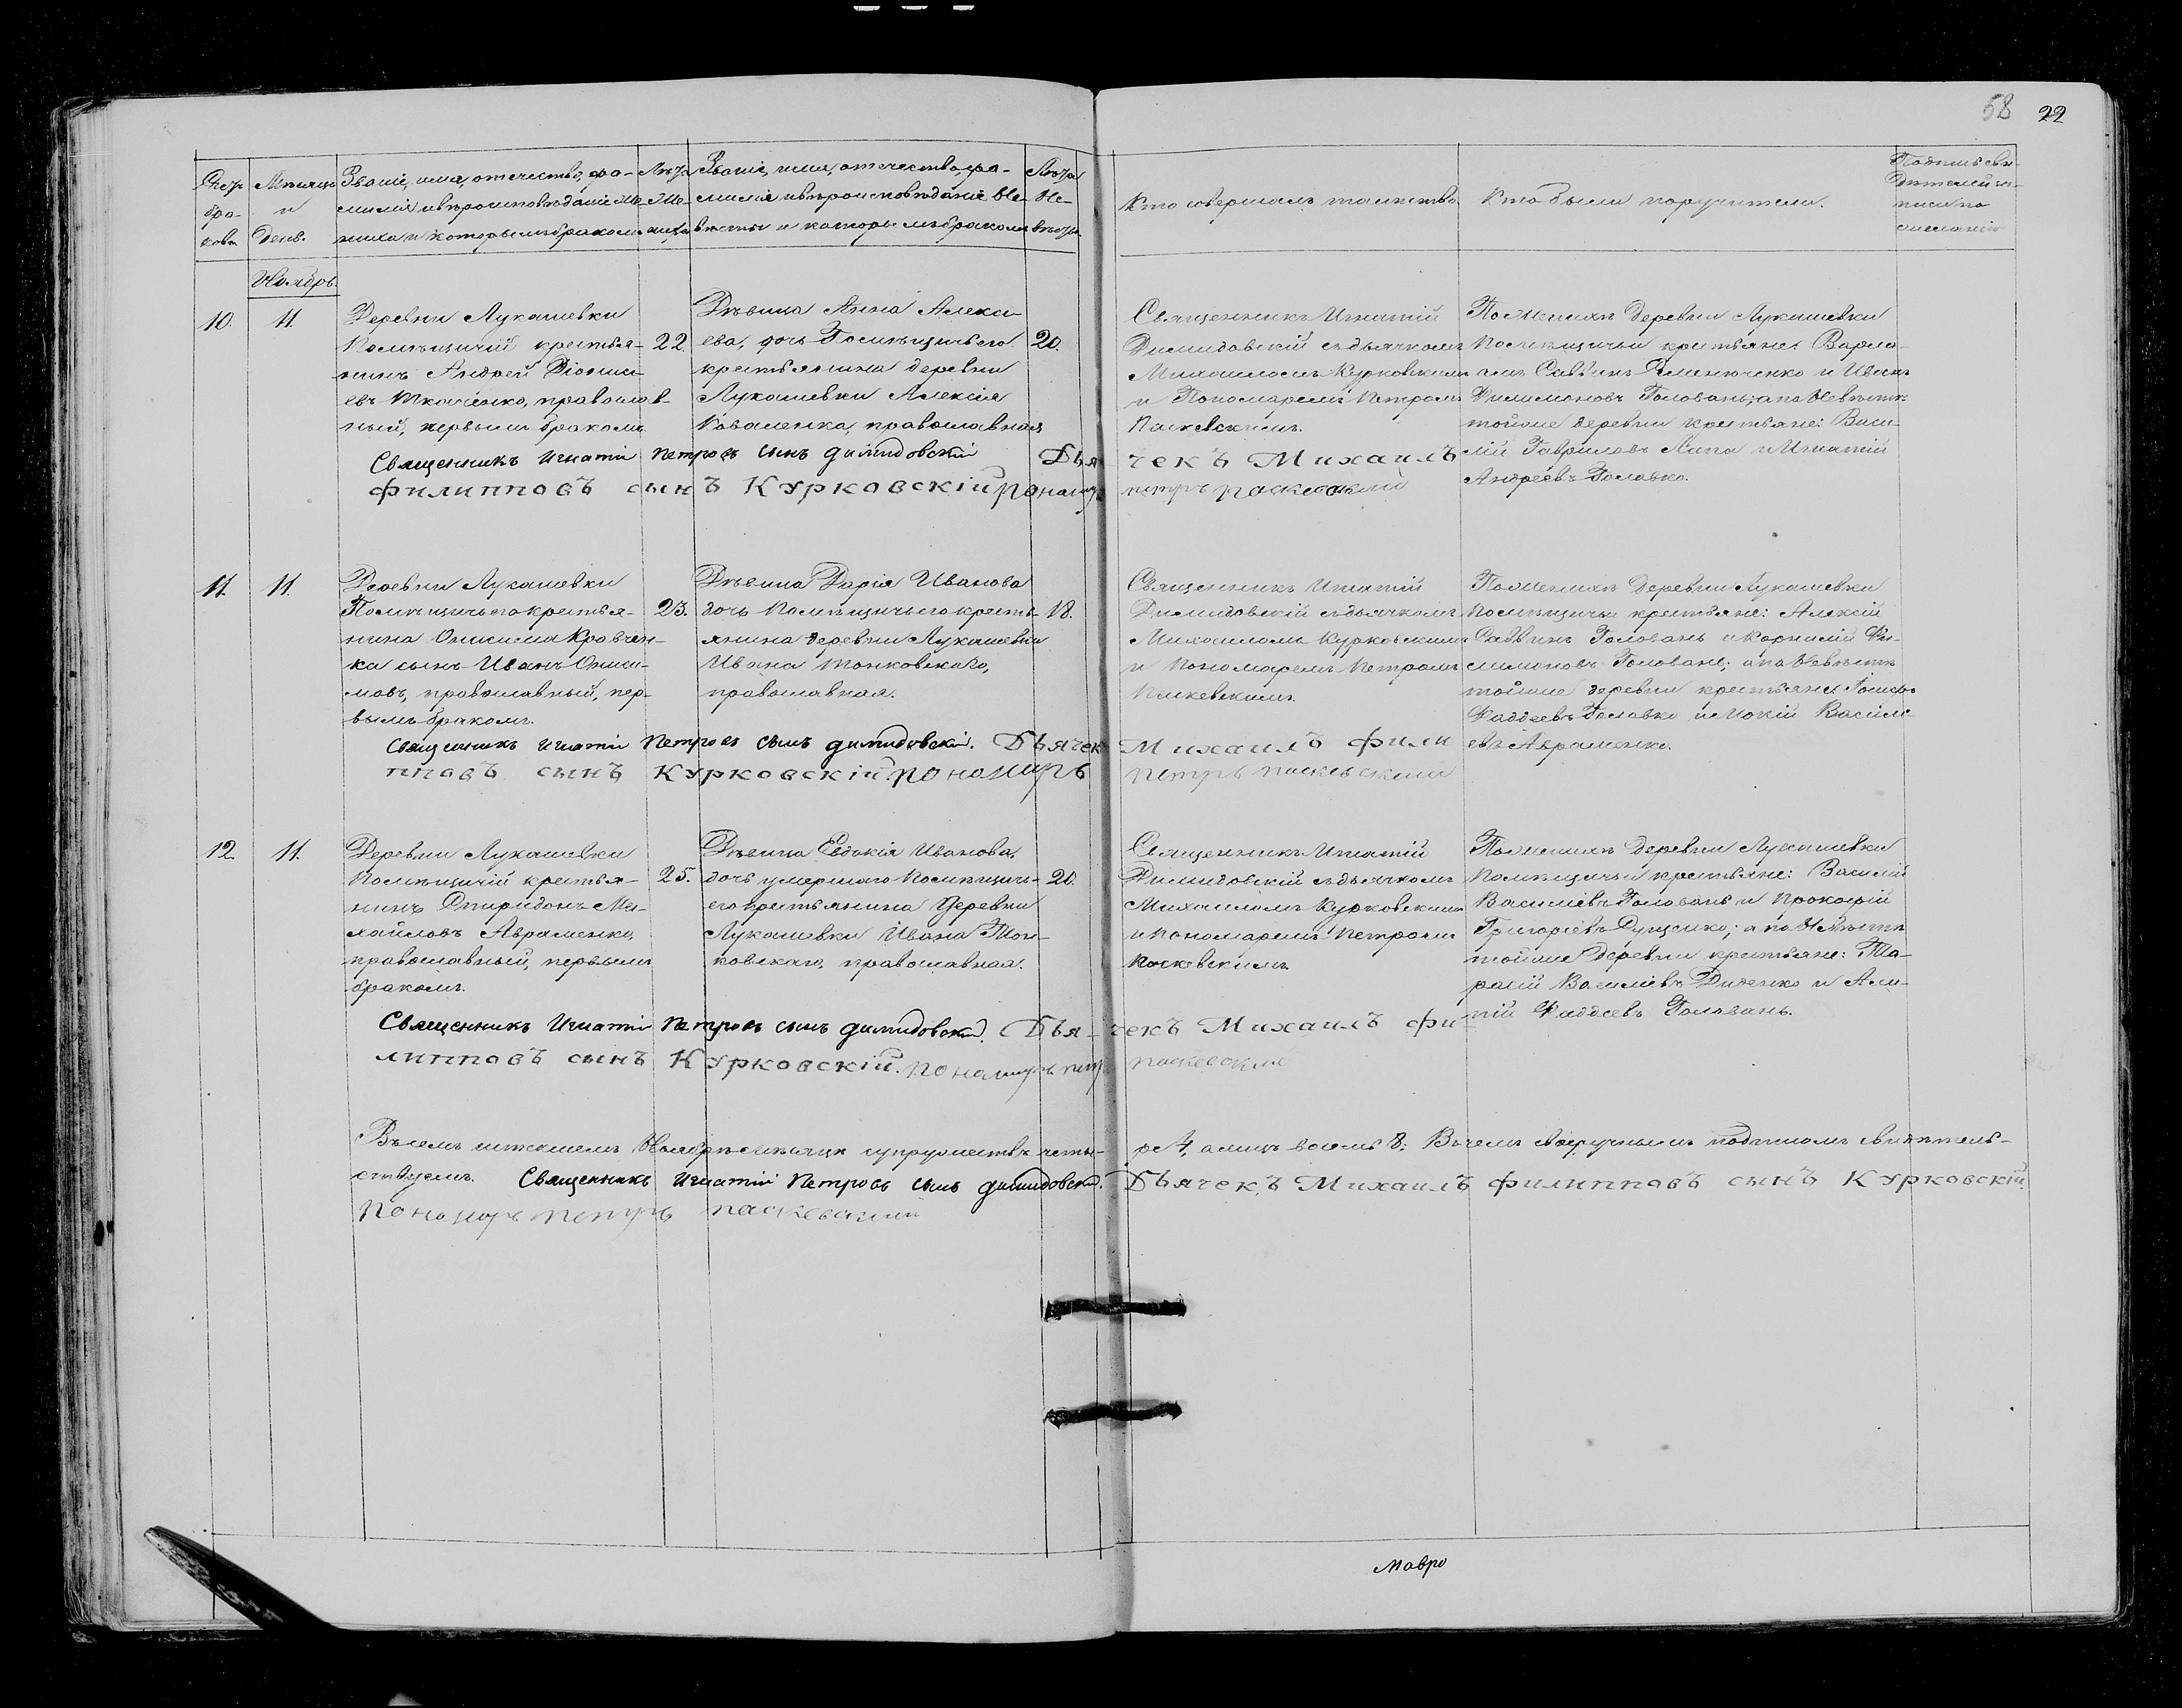 58 22
Счетъ браковъ.
Мѣсяцъ и день.
Званіе, имя, отечество, фа-
милія и вѣроисповѣданіе Же-
ниха и которымъ бракомъ
Лѣта Же-
ниха
Званіе, имя, отечество, фа-
милія и вѣроисповѣданіе Не-
вѣсты и которымъ бракомъ
Лѣта Не-
вѣсты.
Кто совершалъ таинство.
Кто были поручители.
Подпись сви-
дѣтелей за-
писи по
желанію
Ноябрь.
10.
11.
Деревни Лукашевки
Помѣщичій крестья-
нинъ Андрей Діониси-
евъ Ткаченко, православ-
ный, первымъ бракомъ.
22.
Дѣвица Анна Алексі-
ева, дочь Помѣщичьего
крестьянина деревни
Лукашевки Алексія
Коваленка, православная
20.
Священникъ Игнатій
Димидовскій съ дьячкомъ
Михаиломъ Курковскимъ
и Пономаремъ Петромъ
Паскевскимъ.
По Женихѣ деревни Лукашевки
Помѣщичьи крестьяне: Варла-
амъ Саввинъ Семенюченко и Иванъ
Филимоновъ Головань; а по Невѣстѣ
тойже деревни крестьяне: Васи-
лій Гавриловъ Липа и Игнатій
Андреевъ Головко.
Священникъ Игнатій Петровъ сынъ Димидовскій Дья чекъ Михаилъ
Филипповъ сынъ Курковскій Пономарь Петръ Паскевскій
11.
11.
Деревни Лукашевки
Помѣщичьего крестья-
нина Онисима Кравчен-
ка сынъ Иванъ Ониси-
мовъ, православный, пер-
вымъ бракомъ.
23.
Дѣвица Дарія Иванова
дочь Помѣщичьего кресть-
янина деревни Лукашевки
Ивана Тонковскаго,
православная.
18.
Священникъ Игнатій
Димидовскій съ дьячкомъ
Михаиломъ Курковскимъ
и Пономаремъ Петромъ
Паскевскимъ.
По Женихѣ деревни Лукашевки
Помѣщичьи крестьяне: Алексій
Саввинъ Головань и Корнилій Фи-
лимоновъ Головань; а по Невѣстѣ
тойже деревни крестьяне
Фаддеевъ Головко и Мокій Василі-
евъ Авраменко.
Священникъ Игнатій Петровъ сынъ Димидовскій. Дьячек Михаилъ Фили
пповъ сынъ Курковскій. Пономарь Петръ Паскевскій
12.
11.
Деревни Лукашевки
Помѣщичій крестья-
нинъ Спиридонъ Ми-
хайловъ Авраменко,
православный, первымъ
бракомъ.
25.
Дѣвица Евдокія Иванова,
дочь умершаго Помѣщичь-
его крестьянина деревни
Лукашевки Ивана Тон-
ковскаго, православная.
20.
Священникъ Игнатій
Димидовскій съ дьячкомъ
Михаиломъ Курковскимъ
и Пономаремъ Петромъ
Паскевскимъ.
По Женихѣ деревни Лукашевки
Помѣщичьи крестьяне: Василій
Василіевъ Головань и Прокофій
Григоріевъ Дущенко; а по Невѣстѣ
тойже деревни крестьяне: Та-
расій Василіевъ Диденко и Али-
пій Фаддеевъ Головань.
Священникъ Игнатій Петровъ сынъ Димидовскій. Дья- чекъ Михаилъ Фи-
липповъ сынъ Курковскій. Пономарь Петръ Паскевскій
Въ семъ истекшемъ Ноябрѣ мѣсяцѣ супружествъ четы- ре 4, а лицъ восемь 8; Въ чемъ своеручнымъ подписомъ свидѣтель-
ствуемъ. Священникъ Игнатій Петровъ сынъ Димидовскій. Дьячекъ Михаилъ Филипповъ сынъ Курковскій.
Пономарь Петръ Паскевскій
Мавро